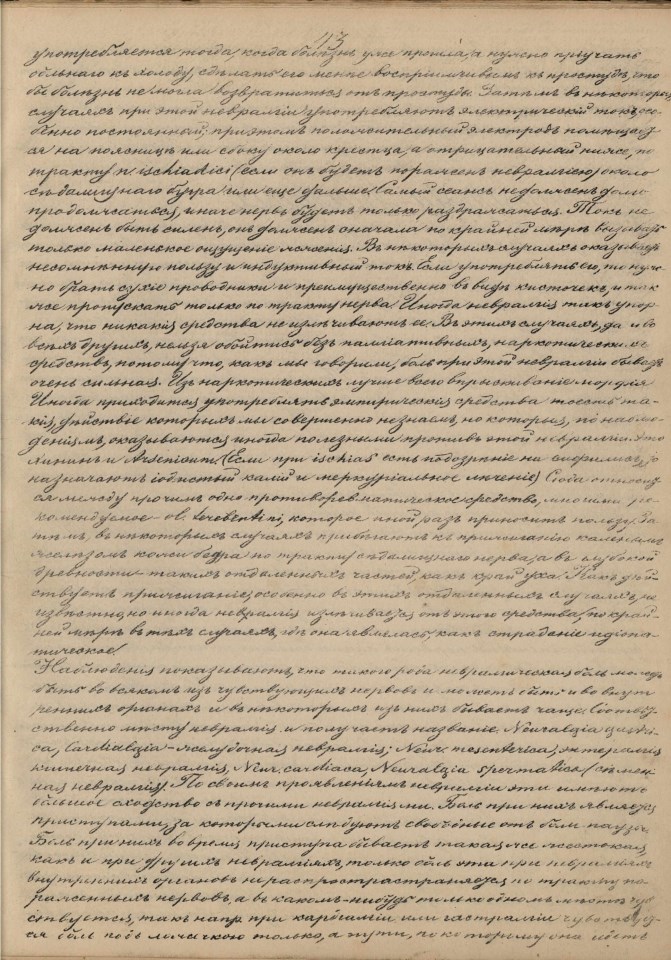 113
употребляется тогда, когда болѣзнь уже прошла, а нужно пріучать
больнаго къ холоду, сдѣлать его менѣе воспріимчивымъ къ простудѣ, что
бы болѣзнь не могла возвратиться отъ простуды. Затѣмъ въ нѣкоторыхъ
случаяхъ при этой невралгіи употребляютъ электрическій токъ, осо-
бенно постоянный; при этомъ положительный электродъ помѣщает-
ся на поясницѣ или сбоку около крестца, а отрицательный ниже, по
тракту n. ischiadici (если онъ будетъ пораженъ невралгіею) около
сѣдалищнаго бугра или еще дальше. Самый сеансъ не долженъ долго
продолжаться, иначе нервъ будетъ только раздражаться. Токъ не
долженъ быть силенъ, онъ долженъ сначала по крайней мѣрѣ вызывать
только маленькое ощущеніе жженія. Въ нѣкоторыхъ случаяхъ оказываетъ
несомнѣнную пользу и индуктивный токъ. Если употреблять его, то нуж-
но брать сухіе проводники и преимущественно въ видѣ кисточекъ, и так
же пропускать только по тракту нерва. Иногда невралгія такъ упор-
на, что никакія средства не излѣчиваютъ ее. Въ этихъ случаяхъ, да и во
всѣхъ другихъ, нельзя обойтись безъ палліативныхъ, наркотическихъ
средствъ, потому что, какъ мы говорили, боль при этой невралгіи бываетъ
очень сильная. Изъ наркотическихъ лучше всего впрыскиваніе морфія
Иногда приходится употреблять эмпирическія средства то есть та-
кія, дѣйствіе которыхъ мы совершенно не знаемъ, но которыя, по наблю-
деніямъ, оказываются иногда полезными противъ этой невралгіи. Это
хининъ и Arsenicum. (Если при ischias есть подозрѣніе на сифилисъ, то
назначаютъ іодистый калій и меркуріальное леченіе) Сюда относит-
ся между прочимъ одно противоревматическое средство, многими ре-
комендуемое ol. terebentini, которое иной разъ приноситъ пользу. За
тѣмъ, въ нѣкоторыхъ случаяхъ прибѣгаютъ къ прижиганію каленымъ
желѣзомъ кожи бедра по тракту сѣдалищнаго нерва, а въ глубокой
древности – такихъ отдаленныхъ частей, какъ край уха. Какъ дѣй
ствуетъ прижиганіе, особенно въ этихъ отдаленныхъ случаяхъ, не
извѣстно, но иногда невралгія излѣчивается отъ этого средства, по край-
ней мѣрѣ въ тѣхъ случаяхъ, гдѣ она явилась, какъ страданіе идіопа-
тическое.
Наблюденія показываютъ, что такого рода невралгическая боль можетъ
быть во всякомъ изъ чувствующихъ нервовъ и можетъ быть и во внут
реннихъ органахъ и въ нѣкоторыхъ изъ нихъ бываетъ чаще. Соотвѣт-
ственно мѣсту невралгія и получаетъ названіе. Neuralgia gastri-
ca, Cardialgia – желудочная невралгія; Neur. mesenterica, энтералгія
кишечная невралгія, Neur. cardiaca, Neuralgia spermatica (сѣмен-
ная невралгія). По своимъ проявленіямъ невралгіи эти имѣютъ
большое сходство съ прочими невралгіями. Боль при нихъ является
приступами, за которыми слѣдуютъ свободные отъ боли паузы.
Боль при нихъ во время приступа бываетъ такая же жестокая
какъ и при другихъ невралгіяхъ, только боль эта при невралгіяхъ
внутреннихъ органовъ не распространяется по тракту по-
раженныхъ нервовъ, а въ какомъ-нибудь только одномъ мѣстѣ чув
ствуется, такъ напр. при кардіалгіи или гастралгіи чувствует-
ся боль подъ ложечкою только, а пути, по которому она идетъ